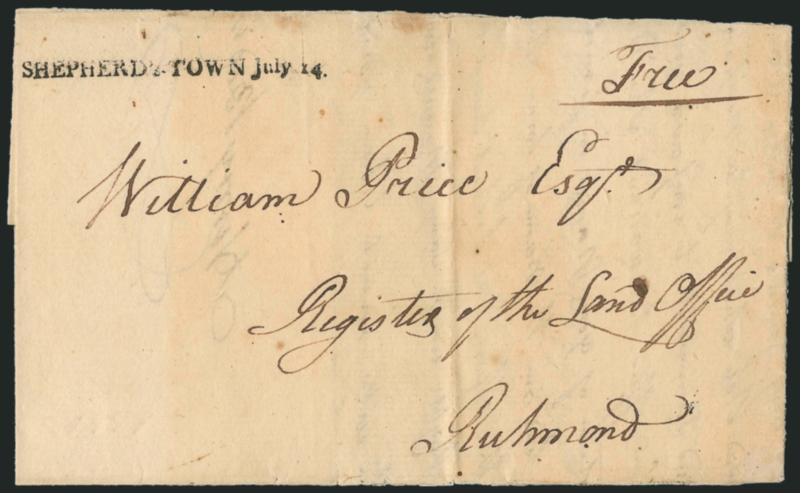 SHEPHERD'S-TOWN July 14.
Free
William Price Esqr.
Register of the Land Office
Richmond